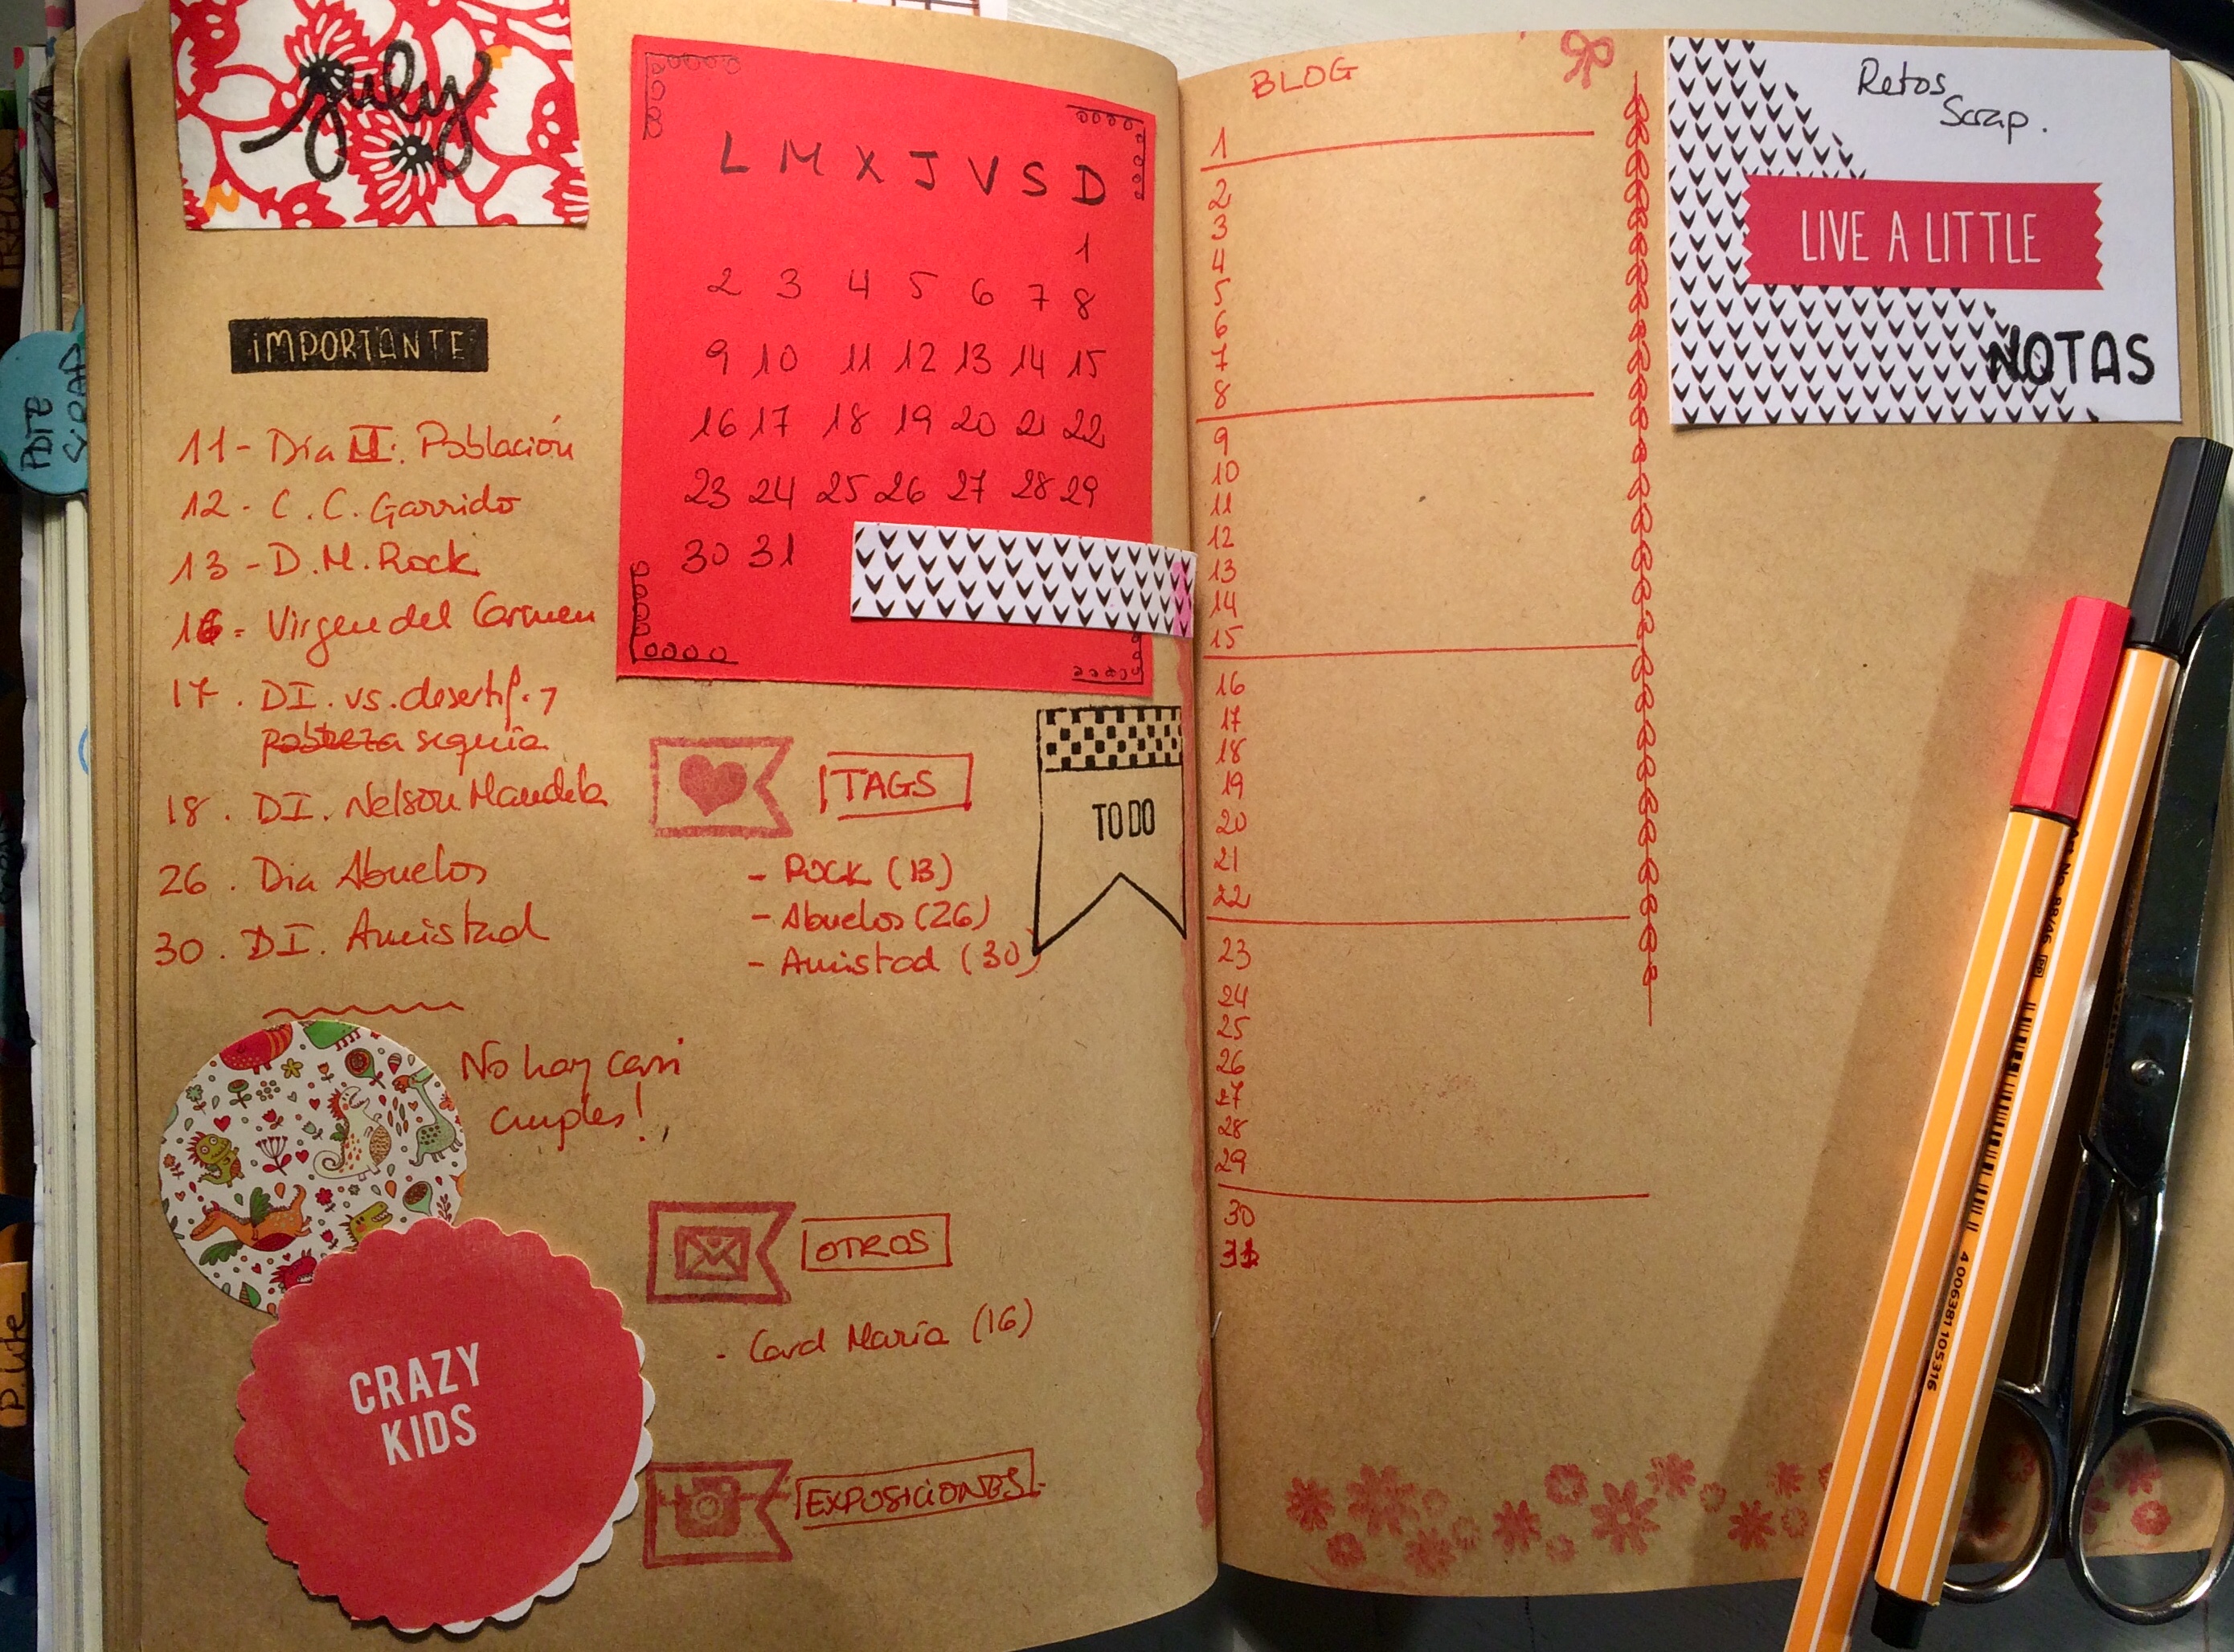 july
IMPORTANTE
11- Día M. Población
12- C. C. Garrido
13- D. M. Rock
16- Virgen del Carmen
17. DI. vs. desertif. y
pobreza sequía
18. DI. Nelson Mandela
26. Dia Abuelos
30. DI. Amistad
No hay casi
cumples!
CRAZY
KIDS
L M X J V S D
1
2 3 4 5 6 7 8
9 10 11 12 13 14 15
16 17 18 19 20 21 22
23 24 25 26 27 28 29
30 31
TAGS
- Rock (13)
- Abuelos (26)
- Amistad (30)
TO DO
OTROS
- Card María (16)
EXPOSICIONES
BLOG
1
2
3
4
5
6
7
8
9
10
11
12
13
14
15
16
17
18
19
20
21
22
23
24
25
26
27
28
29
30
31
Retos
Scrap.
LIVE A LITTLE
NOTAS
88/46
4 006381 105316